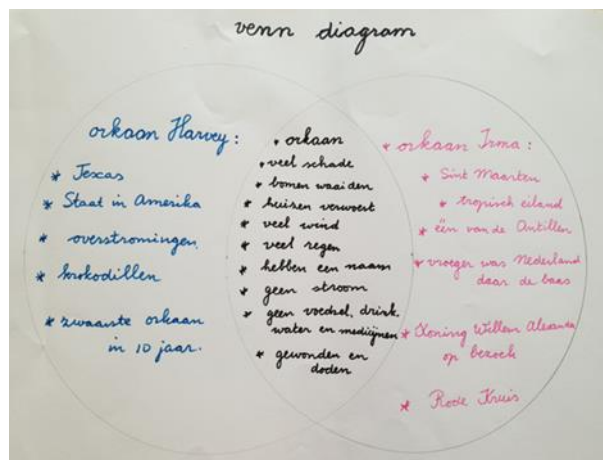 venn diagram
orkaan Harvey:
* Texas
* Staat in Amerika
* overstromingen
* krokodillen
* zwaarste orkaan
in 10 jaar.
* orkaan
* veel schade
* bomen waaiden
* huizen verwoest
* veel wind
* veel regen
* hebben een naam
* geen stroom
* geen voedsel, drink
water en medicijnen
* gewonden en
doden
* orkaan Irma:
* Sint Maarten
* tropisch eiland
* één van de Antillen
* vroeger was Nederland
daar de baas
* Koning Willem Alexander
op bezoek
* Rode Kruis